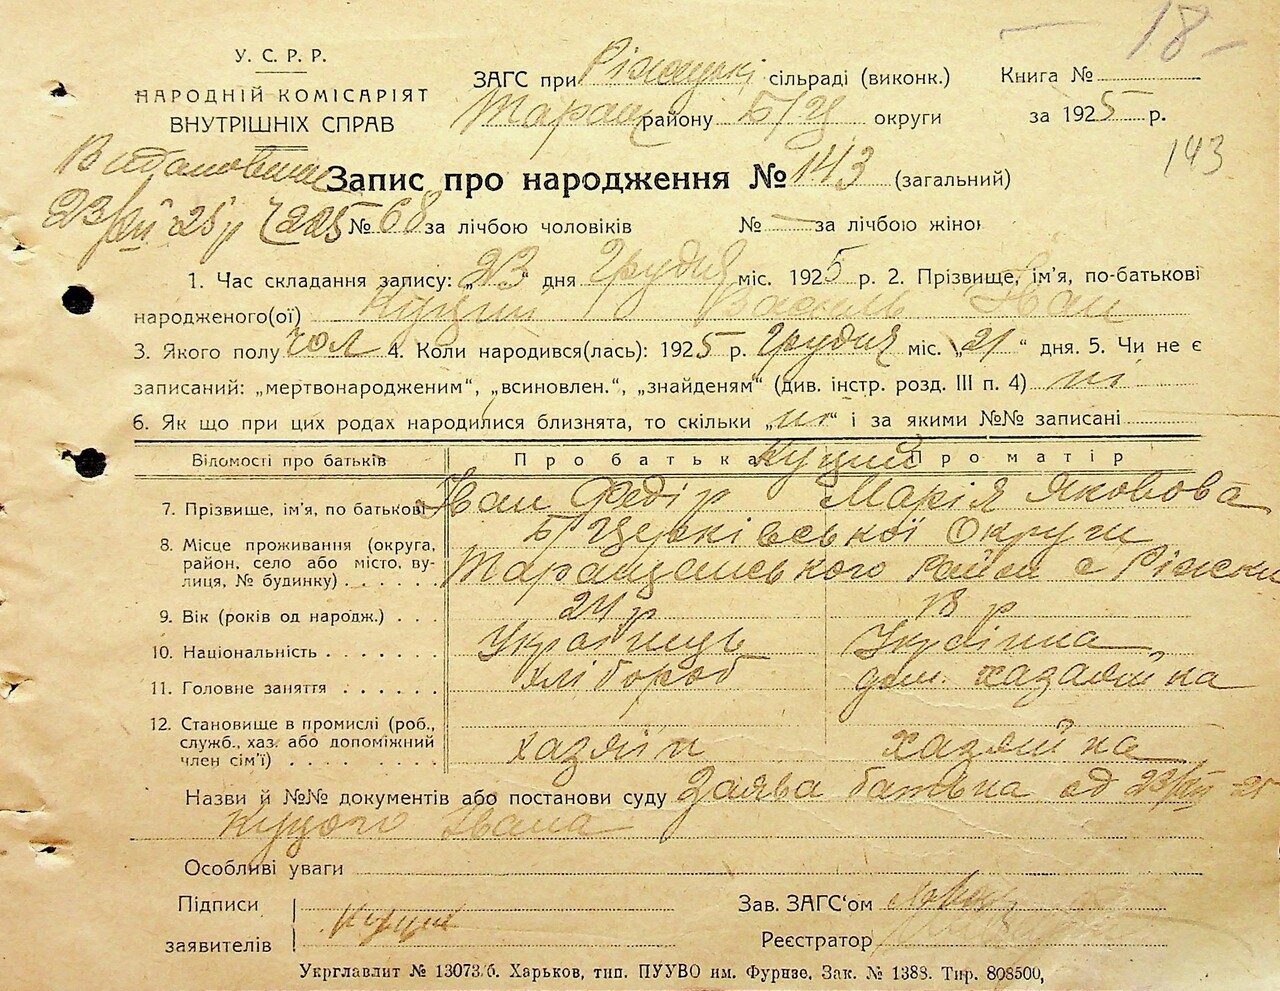 18 –
У. С. Р. Р.
НАРОДНІЙ КОМІСАРІЯТ
ВНУТРІШНІХ СПРАВ
ЗАГС при сільраді (виконк.)
Таращ району Б/Ц округи
Книга №
за 1925 р.
143
23/XII 25 р
Запис про народження № 143 (загальний)
№ 68 за лічбою чоловіків № — за лічбою жінок
1. Час складання запису: „23“ дня Грудня міс. 1925 р. 2. Прізвище, ім'я, по-батькові
народженого(ої) Куций Василь Іван
3. Якого полу чол 4. Коли народився(лась): 1925 р. Грудня міс. „21“ дня. 5. Чи не є
записаний: „мертвонародженим“, „всиновлен.“, „знайденям“ (див. інстр. розд. III п. 4) ні
6. Як що при цих родах народилися близнята, то скільки „ні“ і за якими №№ записані
Відомості про батьків Про батька Куций Про матір
7. Прізвище, ім'я, по батькові Іван Федір Марія Яковова
8. Місце проживання (округа, район, село або місто, вулиця, № будинку) Б/Церківської Округи
Таращанського Район с Ріжки
9. Вік (років од народж.) 24 р 18 р
10. Національність Українець Українка
11. Головне заняття хлібороб дом. хазяйка
12. Становище в промислі (роб., служб., хаз. або допоміжний член сім'ї) хазяїн хазяйка
Назви й №№ документів або постанови суду Заява батька од 23/XII 25
Куцого Івана
Особливі уваги
Підписи
заявителів Куций
Зав. ЗАГС'ом
Реєстратор
Укрглавлит № 13073/б. Харьков, тип. ПУУВО им. Фрунзе. Зак. № 1388. Тир. 808500,